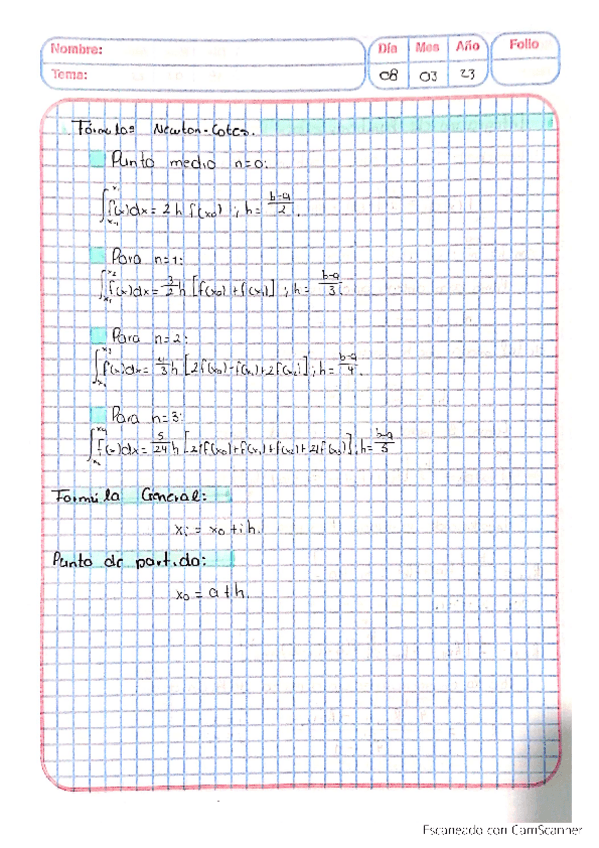 Nombre:
Tema:
Día Mes Año Folio
08 03 23
Fórmulas Newton-Cotes.
Punto medio n=0:
∫_{x-1}^{x1} f(x)dx = 2 h f(x0) ; h = b-a/2.
Para n=1:
∫_{x-1}^{x2} f(x)dx = 3/2 h [f(x0)+f(x1)] ; h = b-a/3.
Para n=2:
∫_{x-1}^{x3} f(x)dx = 4/3 h [2f(x0)-f(x1)+2f(x2)] ; h = b-a/4.
Para n=3:
∫_{x-1}^{x4} f(x)dx = 5/24 h [11f(x0)+f(x1)+f(x2)+11f(x3)] ; h = b-a/5
Formúla General:
xi = x0 + i h.
Punto de partida:
x0 = a + h.
Escaneado con CamScanner